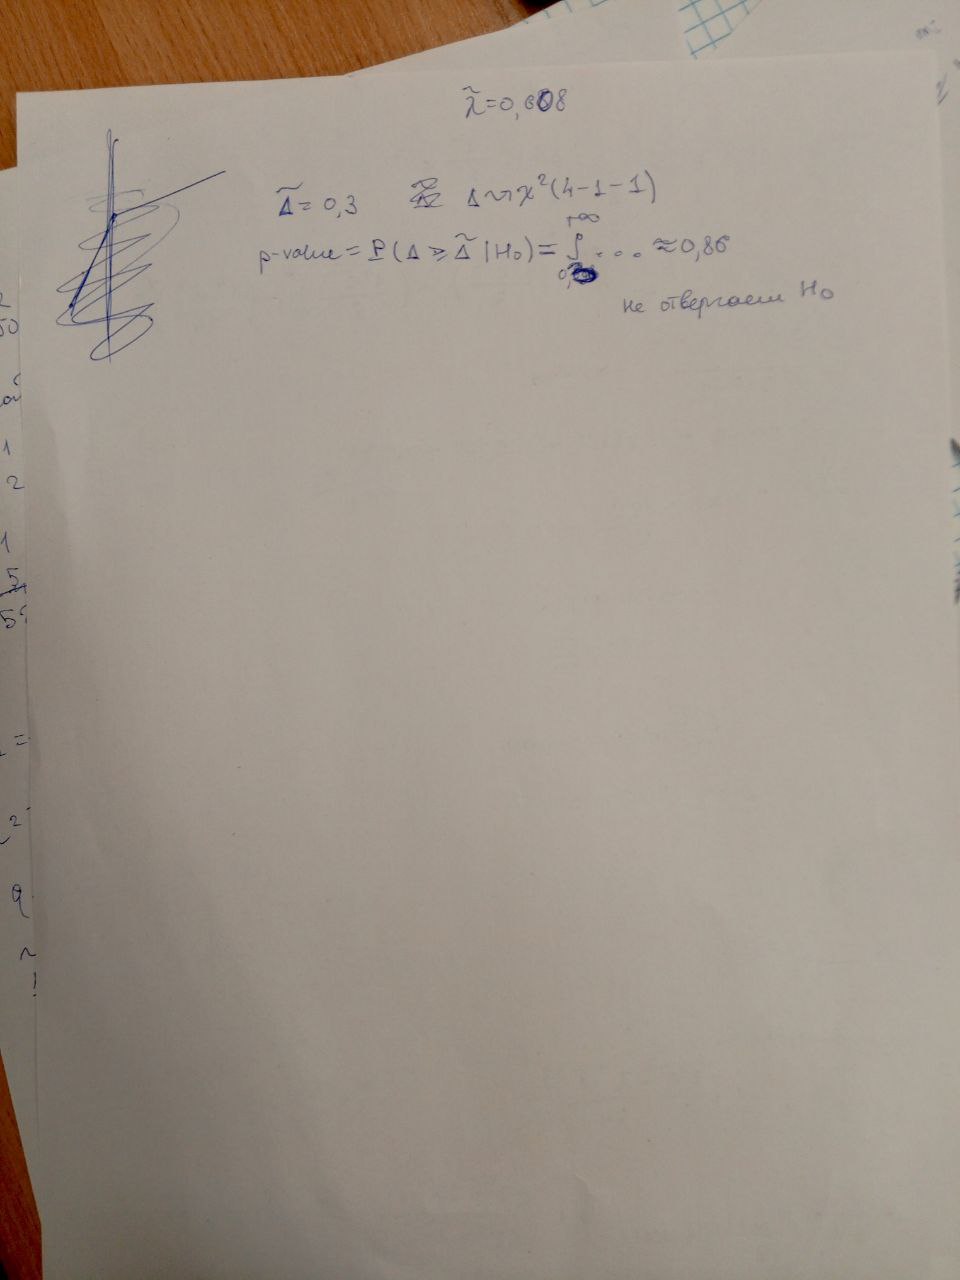 λ̃ = 0,608
Δ̃ = 0,3 Δ ~ χ²(4-1-1)
p-value = P(Δ ⩾ Δ̃ | H₀) = ∫ +∞ 0, ... ≈ 0,86
не отвергаем H₀